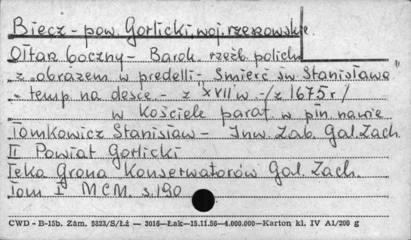 Biecz - pow. Gorlicki, woj. rzeszowskie
Ołtarz boczny - Barok. rzeźb. polichr.
z „obrazem w predelli - Śmierć św Stanisława"
- temp na desce - z XVII w - /z 1675 r/
w kościele parał w płn. nawie
Tomkowicz Stanisław - Inw. Zab. Gal. Zach.
II Powiat Gorlicki
Teka Grona Konserwatorów Gal. Zach.
Tom I MCM. s. 190
CWD - B-15b. Zam. 5823/S/Łź — 3016—Łak—15.11.56—4.000.000—Karton kl. IV A1/200 g